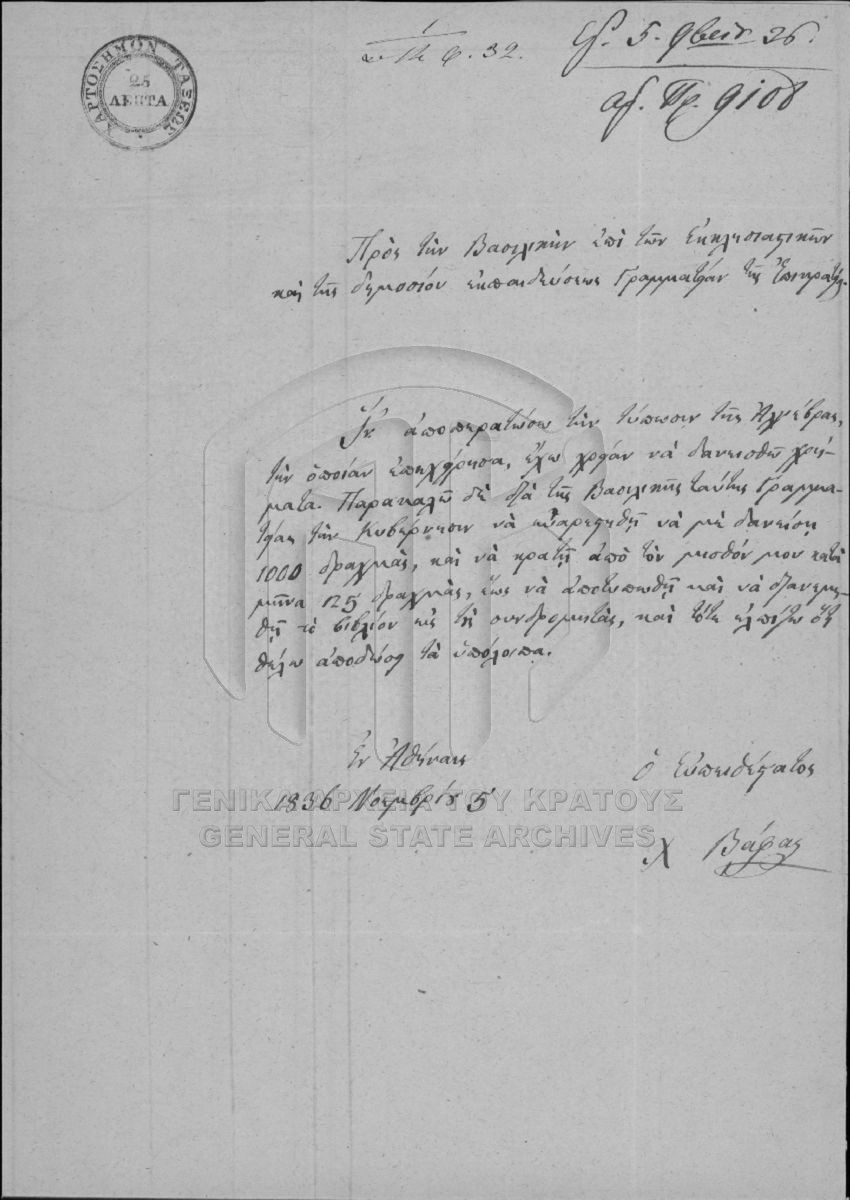 ΧΑΡΤΟΣΗΜΟΝ ΤΑΞΕΩΣ
25
ΛΕΠΤΑ
1
φ. 32.
5. 9βρίου 36.
αρ. Πρ. 9108
Πρὸς τὴν Βασιλικὴν ἐπὶ τῶν Ἐκκλησιαστικῶν
καὶ τῆς δημοσίου ἐκπαιδεύσεως Γραμματείαν τῆς Ἐπικρατείας.
Ἵν' ἀποπερατώσω τὴν τύπωσιν τῆς Ἀλγέβρας,
τὴν ὁποίαν ἐπεχείρησα, ἔχω χρείαν νὰ δανεισθῶ χρή-
ματα. Παρακαλῶ δὲ διὰ τῆς Βασιλικῆς ταύτης Γραμμα-
τείας τὴν Κυβέρνησιν νὰ εὐαρεστηθῇ νὰ μὲ δανείσῃ
1000 δραχμὰς, καὶ νὰ κρατῇ ἀπὸ τὸν μισθόν μου κατὰ
μῆνα 125 δραχμὰς, ἕως νὰ ἀποτυπωθῇ καὶ νὰ διανεμη-
θῇ τὸ βιβλίον εἰς τοὺς συνδρομητὰς, καὶ τότε ἐλπίζω ὅτι
θέλω ἀποδώσει τὰ ὑπόλοιπα.
Ἐν Ἀθήναις
1836 Νοεμβρίου 5
ὁ Εὐπειθέστατος
Χ Βάφας
ΓΕΝΙΚΑ ΑΡΧΕΙΑ ΤΟΥ ΚΡΑΤΟΥΣ
GENERAL STATE ARCHIVES